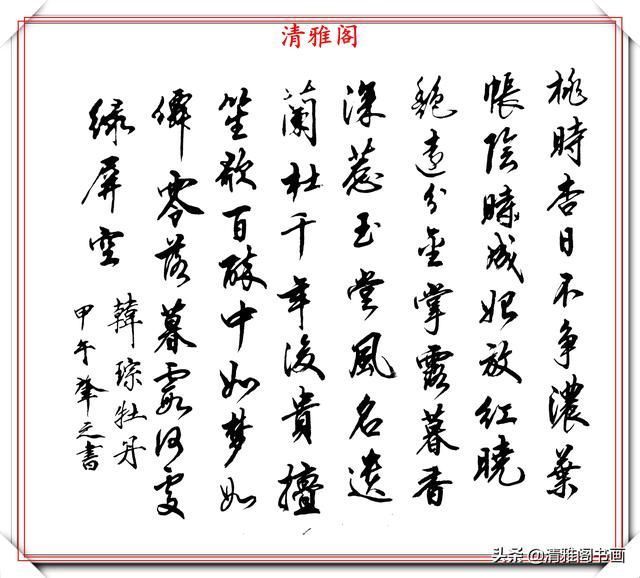 清雅阁
桃時杏日不争濃葉
帳陰時成始放紅曉
艷遠分金掌露暮香
深惹玉堂風名遺
蘭杜千年後貴擅
笙歌百醉中如梦如
僊零落暮霞何處
綠屏空
韓琮牡丹
甲午肇之書
头条 @清雅阁书画